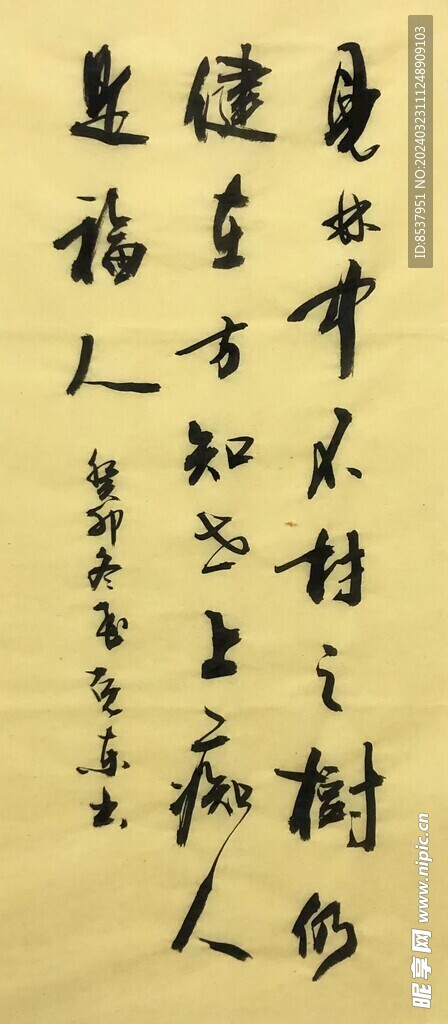 見林中不材之樹仍
健在方知世上痴人
是福人
癸卯冬月克東书
ID:8537951 NO:20240323111248909103
昵享网 www.nipic.cn